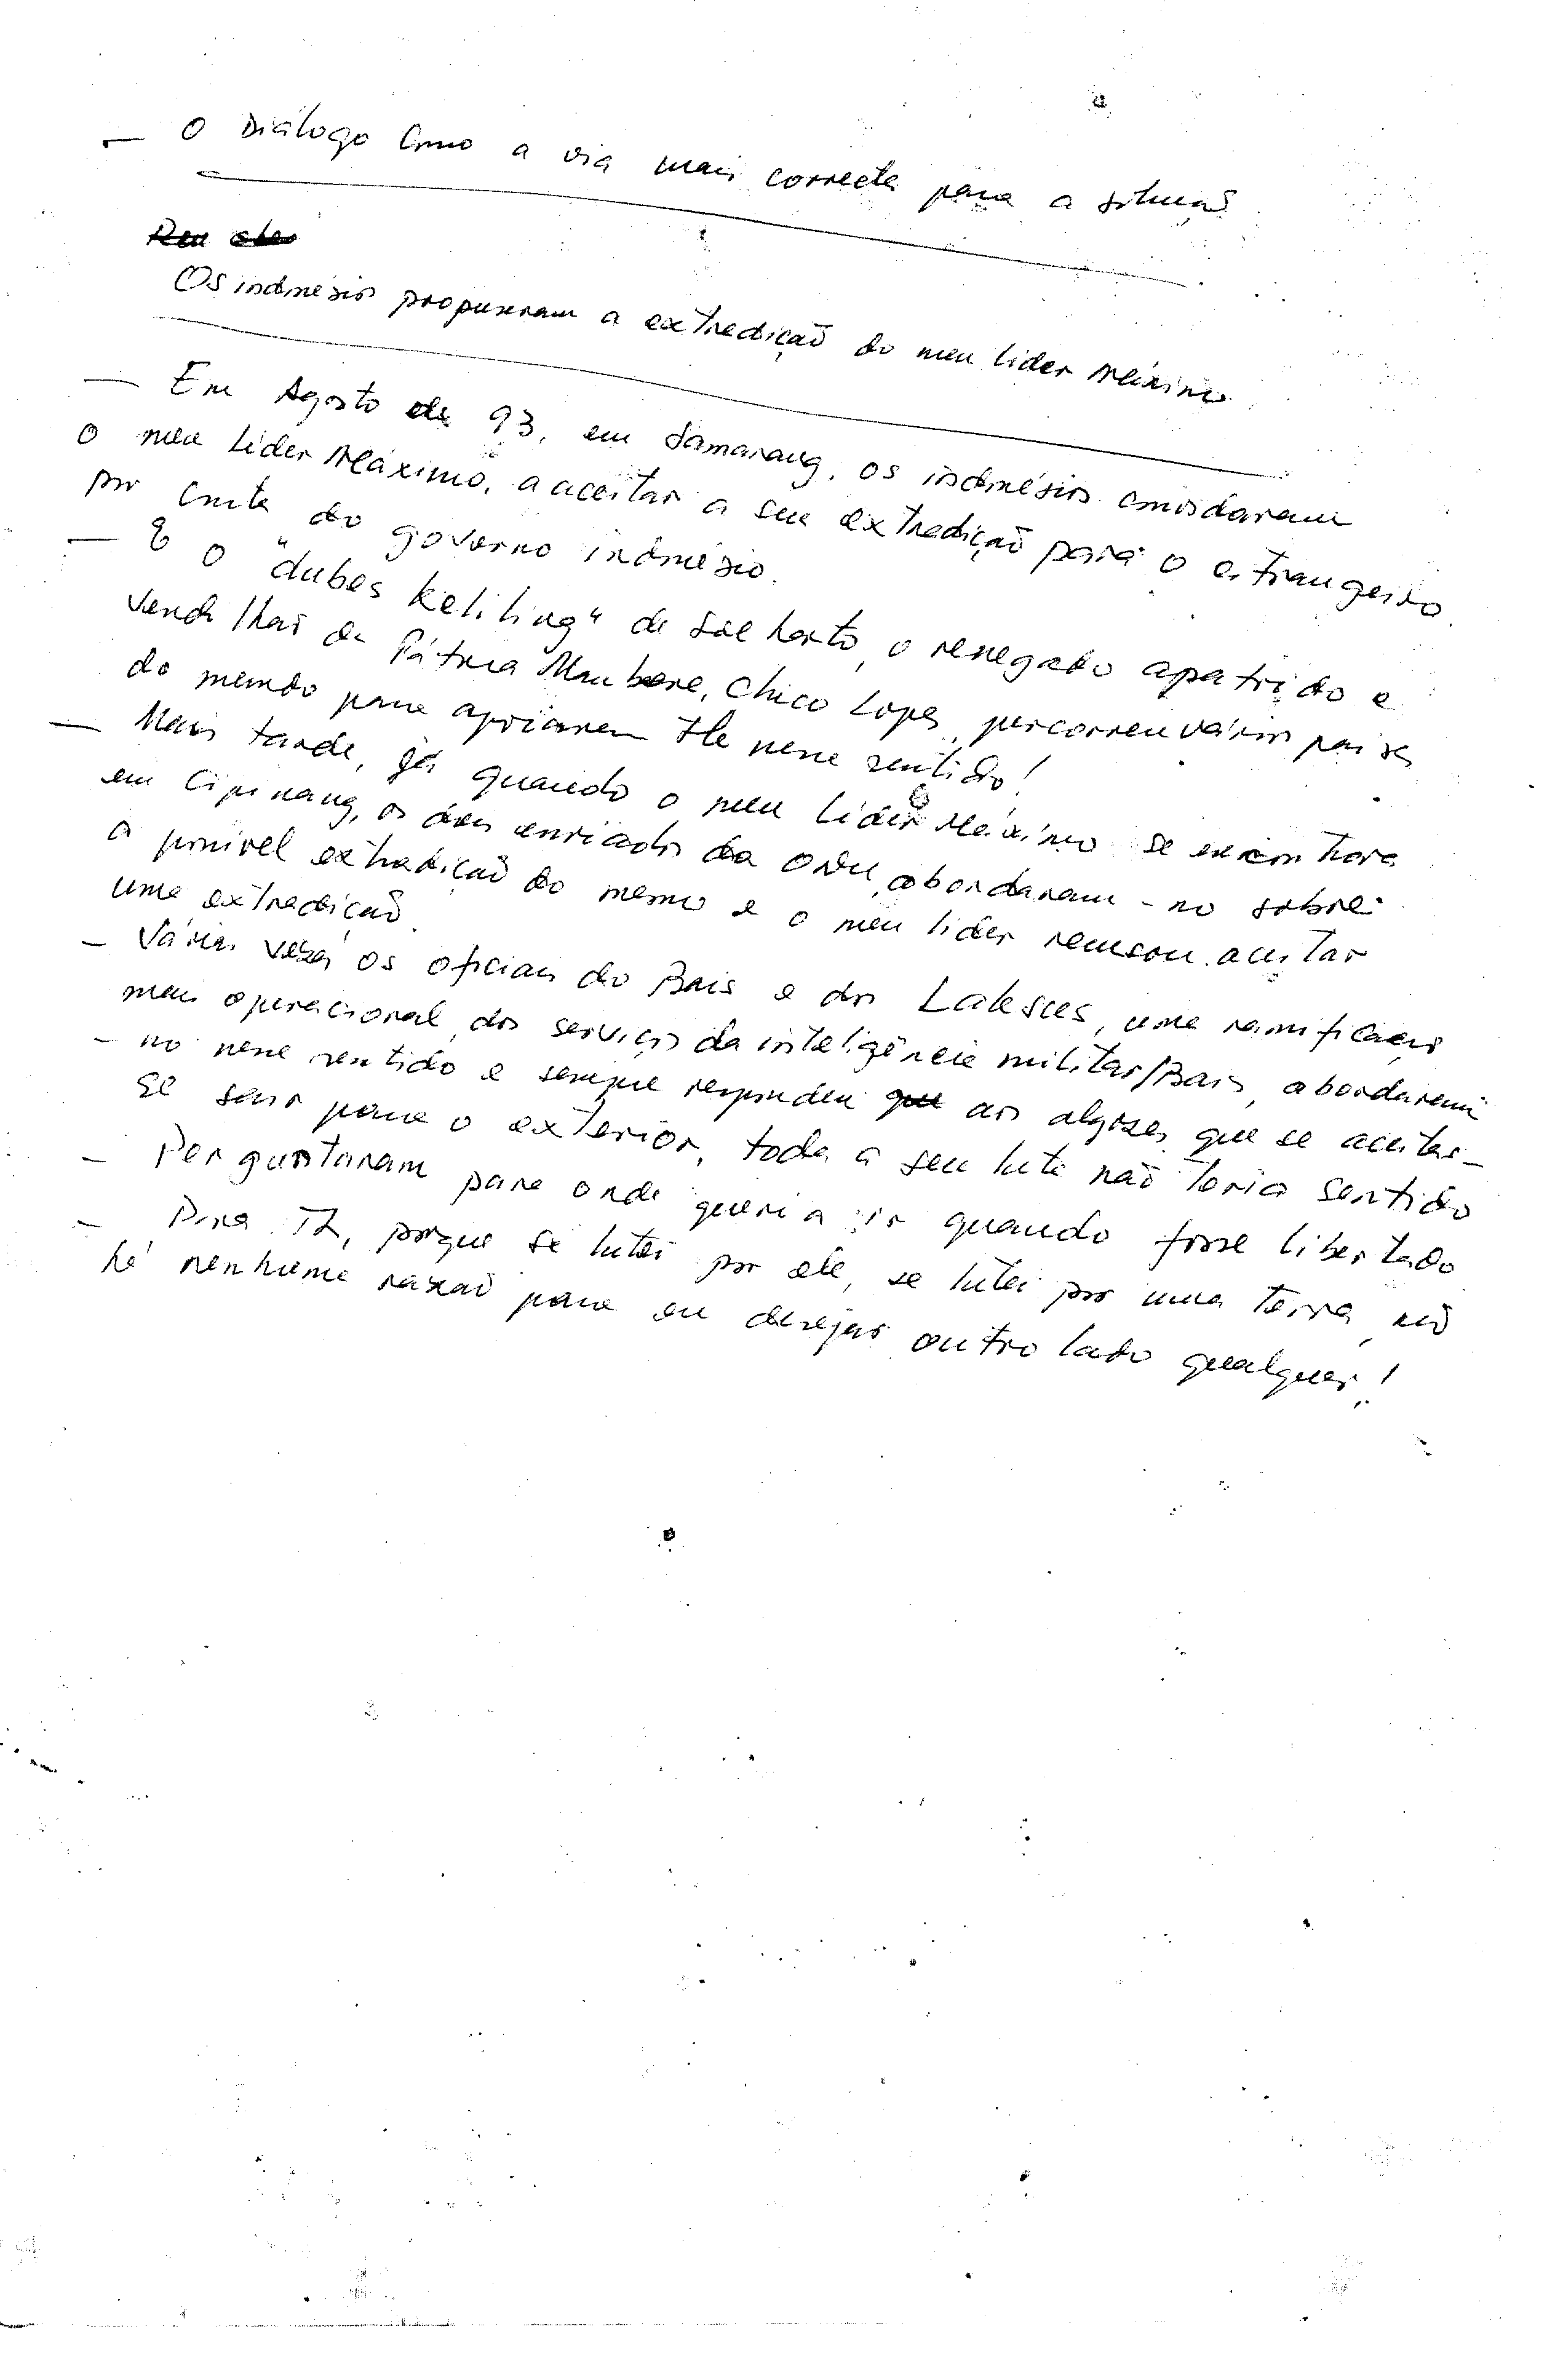 — O Diálogo como a via mais correcta para a situação
Os indonésios propuseram a extradição do meu Líder Máximo
— Em Agosto de 93, em Samarang, os indonésios convidaram
o meu Líder Máximo, a aceitar a sua extradição para o estrangeiro
por conta do governo indonésio.
— E o "dubes keliling" de Soeharto, o renegado apatrido e
vendilhão da Pátria Maubere, Chico Lopes, percorreu vários países
do mundo para apoiarem -lhe nesse sentido!
— Mais tarde, já quando o meu Líder Máximo se encontrava
em Cipinang, os dois enviados da ONU, abordaram-no sobre
a possível extradição do mesmo e o meu líder recusou aceitar
uma extradição.
— Várias vezes os oficiais do Bais e dos Laksus, uma ramificação
mais operacional dos serviços da inteligência militar/Bais, abordaram
- no nesse sentido e sempre respondeu que aos algozes, que se aceitas-
se sair para o exterior, toda a sua luta não teria sentido
— Perguntaram para onde queria ir quando fosse libertado
— Para TL, porque se lutei por ele, se lutei por uma terra, não
há nenhuma razão para eu desejar outro lado qualquer!